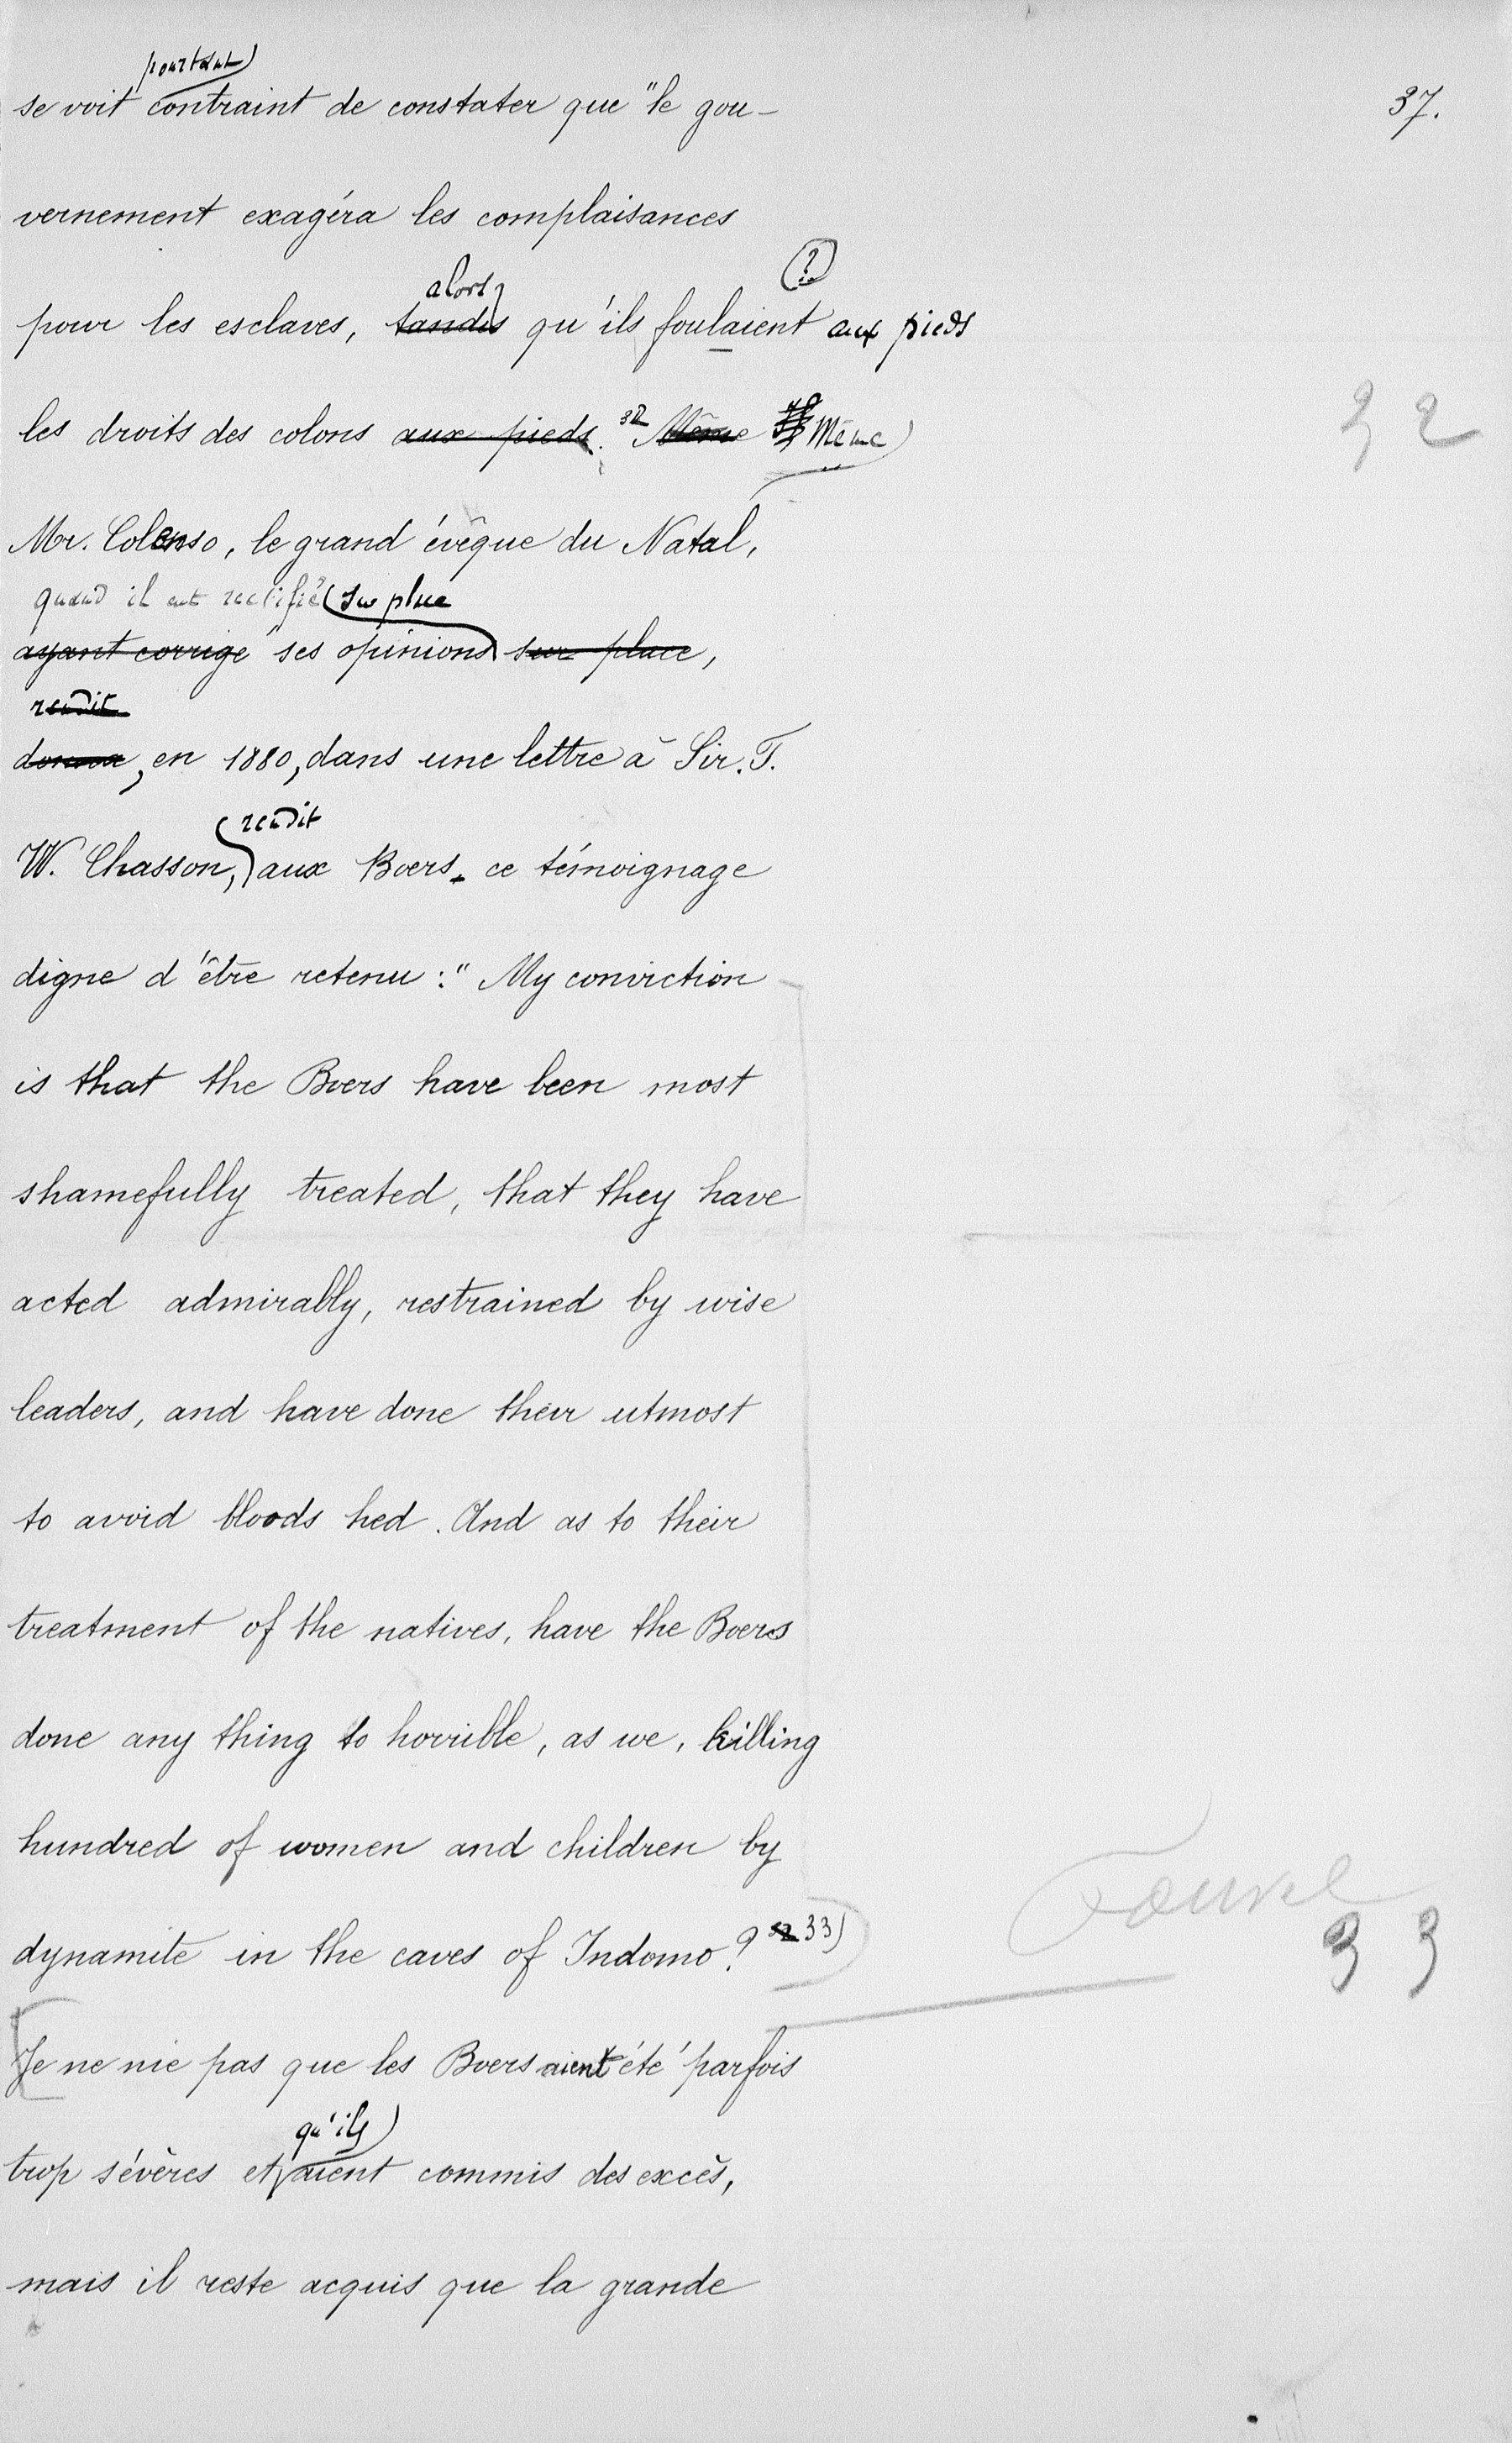 pourtant
se voit contraint de constater que "le gou- 37.
vernement exagéra les complaisances
alors ?
pour les esclaves, tandis qu'ils foulaient aux pieds
les droits des colons aux pieds. 32 Même Même 32
Mr. Colenso, le grand évêque du Natal,
quand il eut rectifié sur place
ayant corrigé ses opinions sur place,
rendit
donna, en 1880, dans une lettre à Sir. T.
rendit
W. Chasson, aux Boers ce témoignage
digne d'être retenu: "My conviction
is that the Boers have been most
shamefully treated, that they have
acted admirably, restrained by wise
leaders, and have done their utmost
to avoid bloods hed. And as to their
treatment of the natives, have the Boers
done any thing to horrible, as we, killing
hundred of women and children by
dynamite in the caves of Indomo? 33) 33
Je ne nie pas que les Boers aient été parfois
qu'ils
trop sévères et aient commis des excès,
mais il reste acquis que la grande